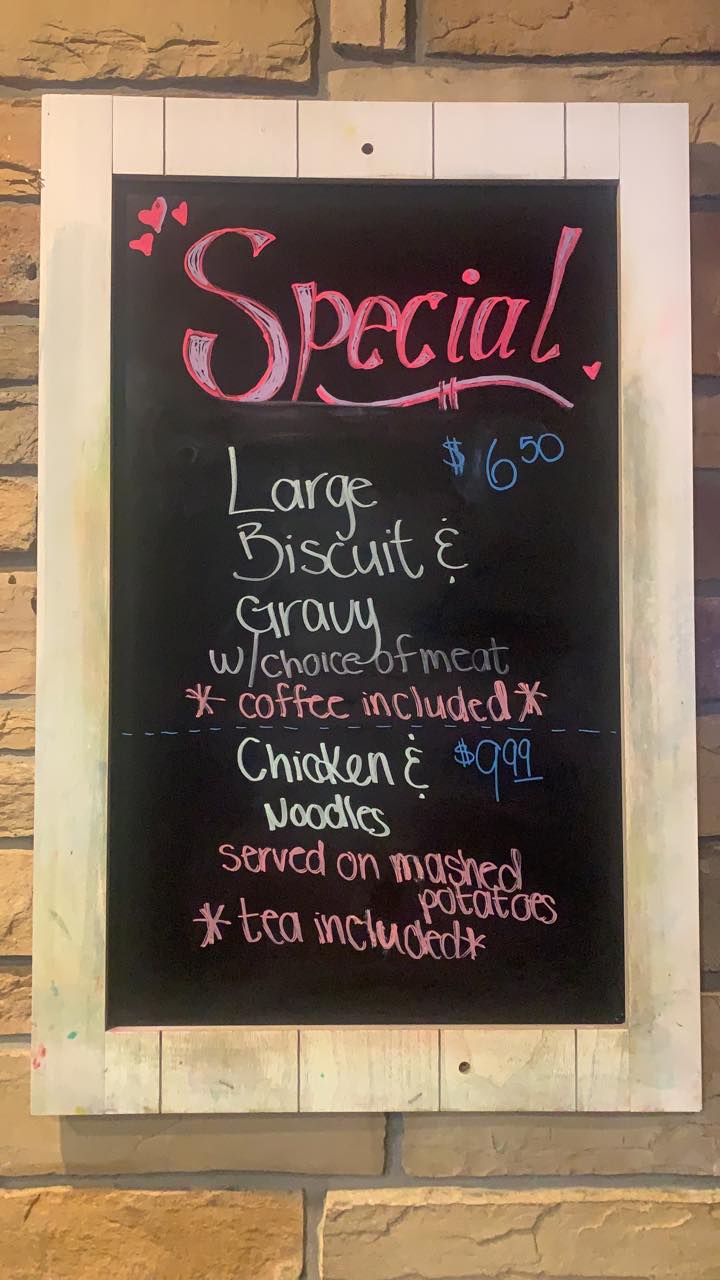 Special
$6.50
Large
Biscuit &
Gravy
w/choice of meat
* coffee included *
Chicken & $9.99
Noodles
served on mashed
potatoes
* tea included*